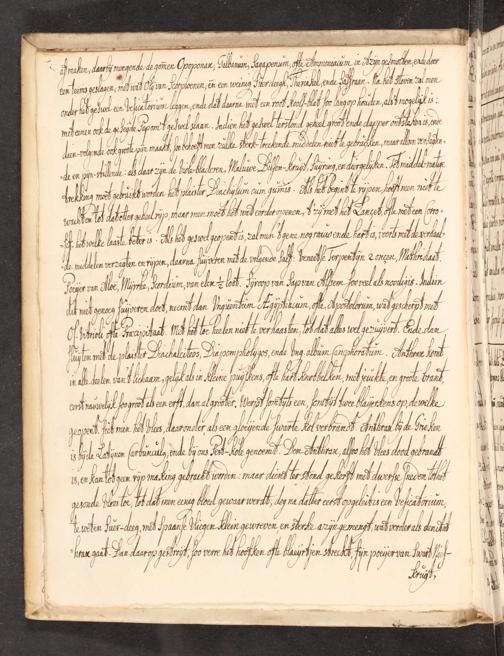 afmaken, daarbij mengende de gomen Opoponax, Galbanum, Sagapenum, ofte Ammoniacum, in Azijn gesmolten, ende door
een teems geslagen, met wat Oly van Scorpioenen, en een weinig Suerdeegh, Theriakel, ende Saffraan. Na het
onder het geswel een Vesicatorium leggen, ende dat daarna met een root Kool-blat soo lang op houden, als 't mogelijk is:
met eenen ook de geseyde Pap om 't geswel slaan. Indien het geswel terstond geheel groot ende dapper ontsteken is, ende
dien-volgende ook groote pijn maakt, soo behoeft men zulke sterk-treckende middelen niet te gebruicken, maar alleen versagten-
de en pijn-stillende: als daar zijn de Viole-bladeren, Maluwe, Bilsen-kruyt, Suyring, en diergelijken. Tot middelmatige
trekking moet gebruickt worden het plaaster Diachylum cum gumis. Als het begint te rijpen, hoeft men niet te
wachten tot dat het geheel rijp maar men moet het wat eerder openen, 't zij met het Lancet, ofte met een Corro-
sif, het welke laaste beter is. Als het geswel geopent is, zal men 't gene nog rauw ende hart is, voorts met de versaa
de middelen versagten en rijpen, daarna suyveren met de volgende salf: Veneetse Terpentijn 2 oncen, Mastic
Poeyer van Aloe, Mijrrhe, Scordium, van elcx ½ loot. Sijroop van Sap van Alssem hoe veel als noodig is. Indien
dit niet genoeg suyveren doet, neemt dan Unguentum Aegyptiacum, ofte Apostolorum, wat gescherpt met
Of Vitriool, ofte Precipitaat. Met het toe heelen niet te verhaasten, tot dat alles wel gezuyvert. Ende dan
sluyten met de plaaster Diachalciteos, Diapompholygos, ende Ung. album Camphoratum. Anthrax komt
in alle deelen van 't lichaam, gelijk als in kleine puystkens, ofte hart knobbelken, met jeuckte, en groote brant,
eerst nauwelijk soo groot als een erft, dan al grooter. Werpt somtyts een, somtijts twee blaijerkens op, de welke
geopent, siet men het Vlees, daaronder als een gloeijende swarte kool verbrandt. Anthrax bij de Grieken
is bij de Latijnen Carbunculus, ende bij ons Pest-kole genoemt. Den Anthrax, alsoo het vlees dood gebrandt
is, en kan tot geen rijpmaking gebracht worden: maar dient terstond gekerft met diverse sneden tot het
gesonde vlees toe, tot dat men eenig bloed gewaar werdt, dog na datter eerst opgeleit is een Vesicatorium,
te weten Suer-deeg, met Spaanse Vliegen klein gewreven en sterke azijn gemengt, wat verder als den
kring gaat. Dan daarop gestroyt, soo verre het hooftken ofte blaijertjen streckt, fijn poeijer van Swart Nies-
kruyt,